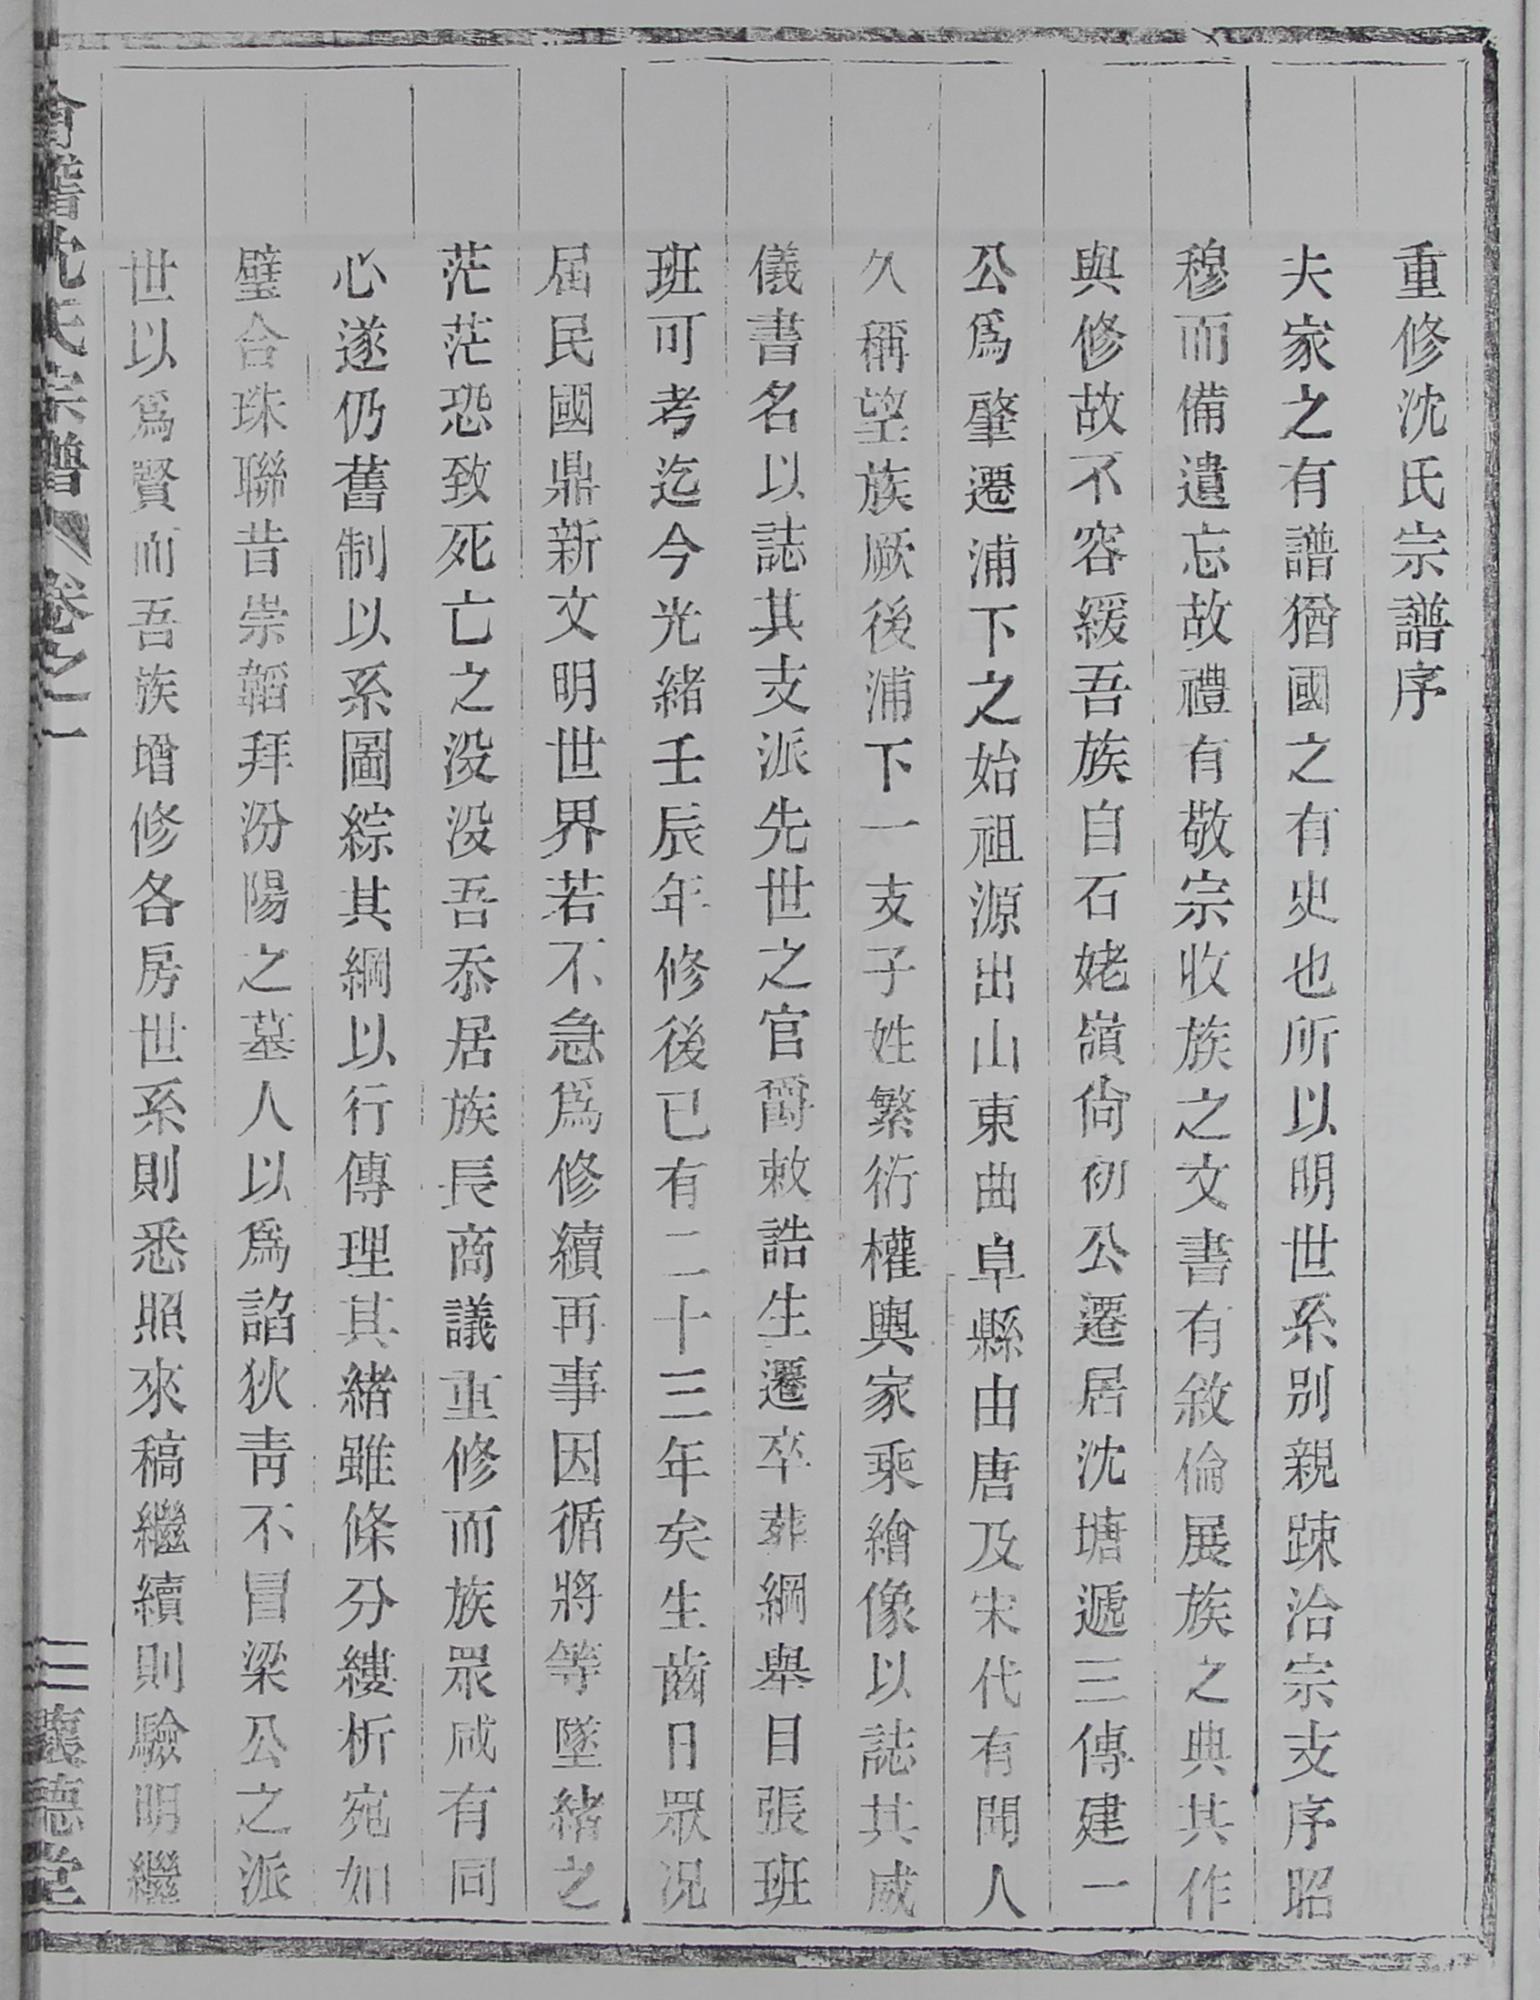 重修沈氏宗譜序
夫家之有譜猶國之有史也所以明世系别親踈洽宗支序昭
穆而備遺忘故禮有敬宗收族之文書有敘倫展族之典其作
與修故不容緩吾族自石姥嶺尙初公遷居沈塘遞三傳建一
公爲肇遷浦下之始祖源出山東曲阜縣由唐及宋代有聞人
久稱望族厥後浦下一支子姓繁衍權輿家乘繪像以誌其威
儀書名以誌其支派先世之官爵敕誥生遷卒葬綱舉目張班
班可考迄今光緒壬辰年修後已有二十三年矣生齒日眾况
屆民國鼎新文明世界若不急爲修續再事因循將等墜緒之
茫茫恐致死亡之没没吾忝居族長商議重修而族眾咸有同
心遂仍舊制以系圖綜其綱以行傳理其緒雖條分縷析宛如
璧合珠聯昔崇韜拜汾陽之墓人以爲諂狄靑不冒梁公之派
世以爲賢而吾族增修各房世系則悉照來稿繼續則驗明繼
會稽沈氏宗譜 卷之一
三 讓德堂